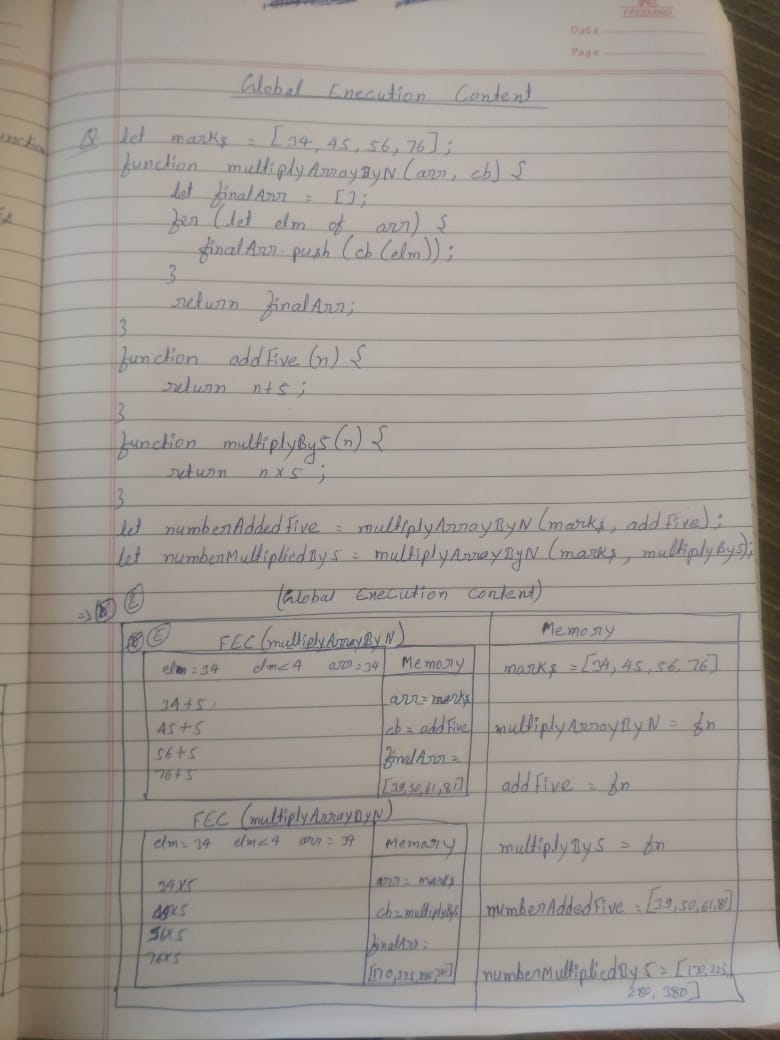 FREEMIND
Date
Page
Global Execution Content
Q let marks = [34, 45, 56, 76];
function multiplyArrayByN (arr, cb) {
let finalArr = [];
for (let elm of arr) {
finalArr.push (cb (elm));
}
return finalArr;
}
function addFive (n) {
return n+5;
}
function multiplyBy5 (n) {
return n x 5;
}
let numberAddedFive = multiplyArrayByN (marks, addFive);
let numberMultipliedBy5 = multiplyArrayByN (marks, multiplyBy5);
=> E (Global Execution Content)
E FEC (multiplyArrayByN)
elm = 34 elm<4 arr = 34
34+5
45+5
56+5
76+5
Memory
arr = marks
cb = addFive
finalArr =
[39,50,61,81]
FEC (multiplyArrayByN)
elm = 34 elm<4 arr = 34
34x5
45x5
56x5
76x5
Memory
arr = marks
cb = multiplyBy5
finalArr =
[170,225,280,380]
Memory
marks = [34, 45, 56, 76]
multiplyArrayByN = fn
addFive = fn
multiplyBy5 = fn
numberAddedFive = [39,50,61,81]
numberMultipliedBy5 = [170,225,
280, 380]